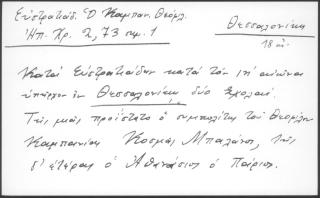 Εὐστρατιάδ. Ὁ Καμπαν. Θεόφιλ.
Ἠπ. Χρ. 2, 73 σημ. 1
Θεσσαλονίκη
18 αἰ.
Κατὰ Εὐστρατιάδην κατὰ τὸν ιη αἰῶνα
ὑπῆρχον ἐν Θεσσαλονίκῃ δύο σχολαί.
Τῆς μιᾶς προΐστατο ὁ συμπολίτης τοῦ Θεοφίλου
Καμπανίας Κοσμᾶς Μπαλάνος, τῆς
δ' ἑτέρας ὁ Ἀθανάσιος ὁ Πάριος.